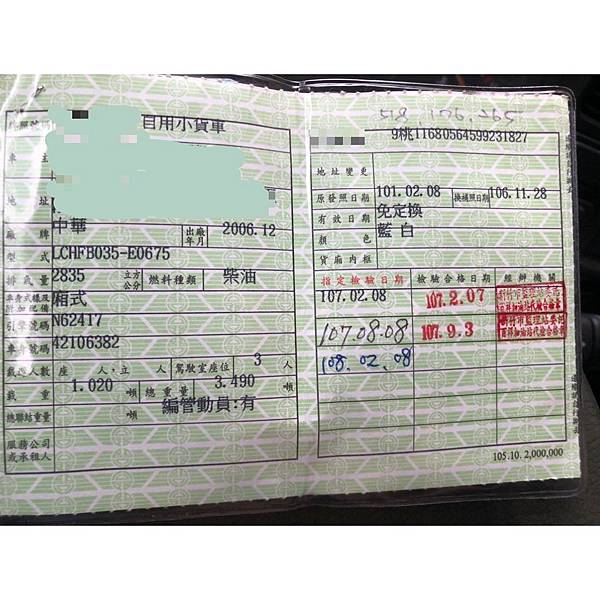 自用小貨車
車主
地址
廠牌 中華 出廠年月 2006.12
型式 LCHFB035-E0675
排氣量 2835 立方公分 燃料種類 柴油
車身式樣及附加配備 廂式
引擎號碼 N62417
車身號碼 42106382
載運人數 座 人，立 人 駕駛室座位 3 人
載重 1.020 噸 總重量 3.490 噸
總聯結重量 噸 編管動員:有
服務公司或承租人
9桃11680564599231827
地址變更
原發照日期 101.02.08 換補照日期 106.11.28
有效日期 免定換
顏色 藍 白
貨廂內框
指定檢驗日期 檢驗合格日期 經辦機關
107.02.08 107.2.07
107.08.08 107.9.3
108.02.08
105.10.2,000,000